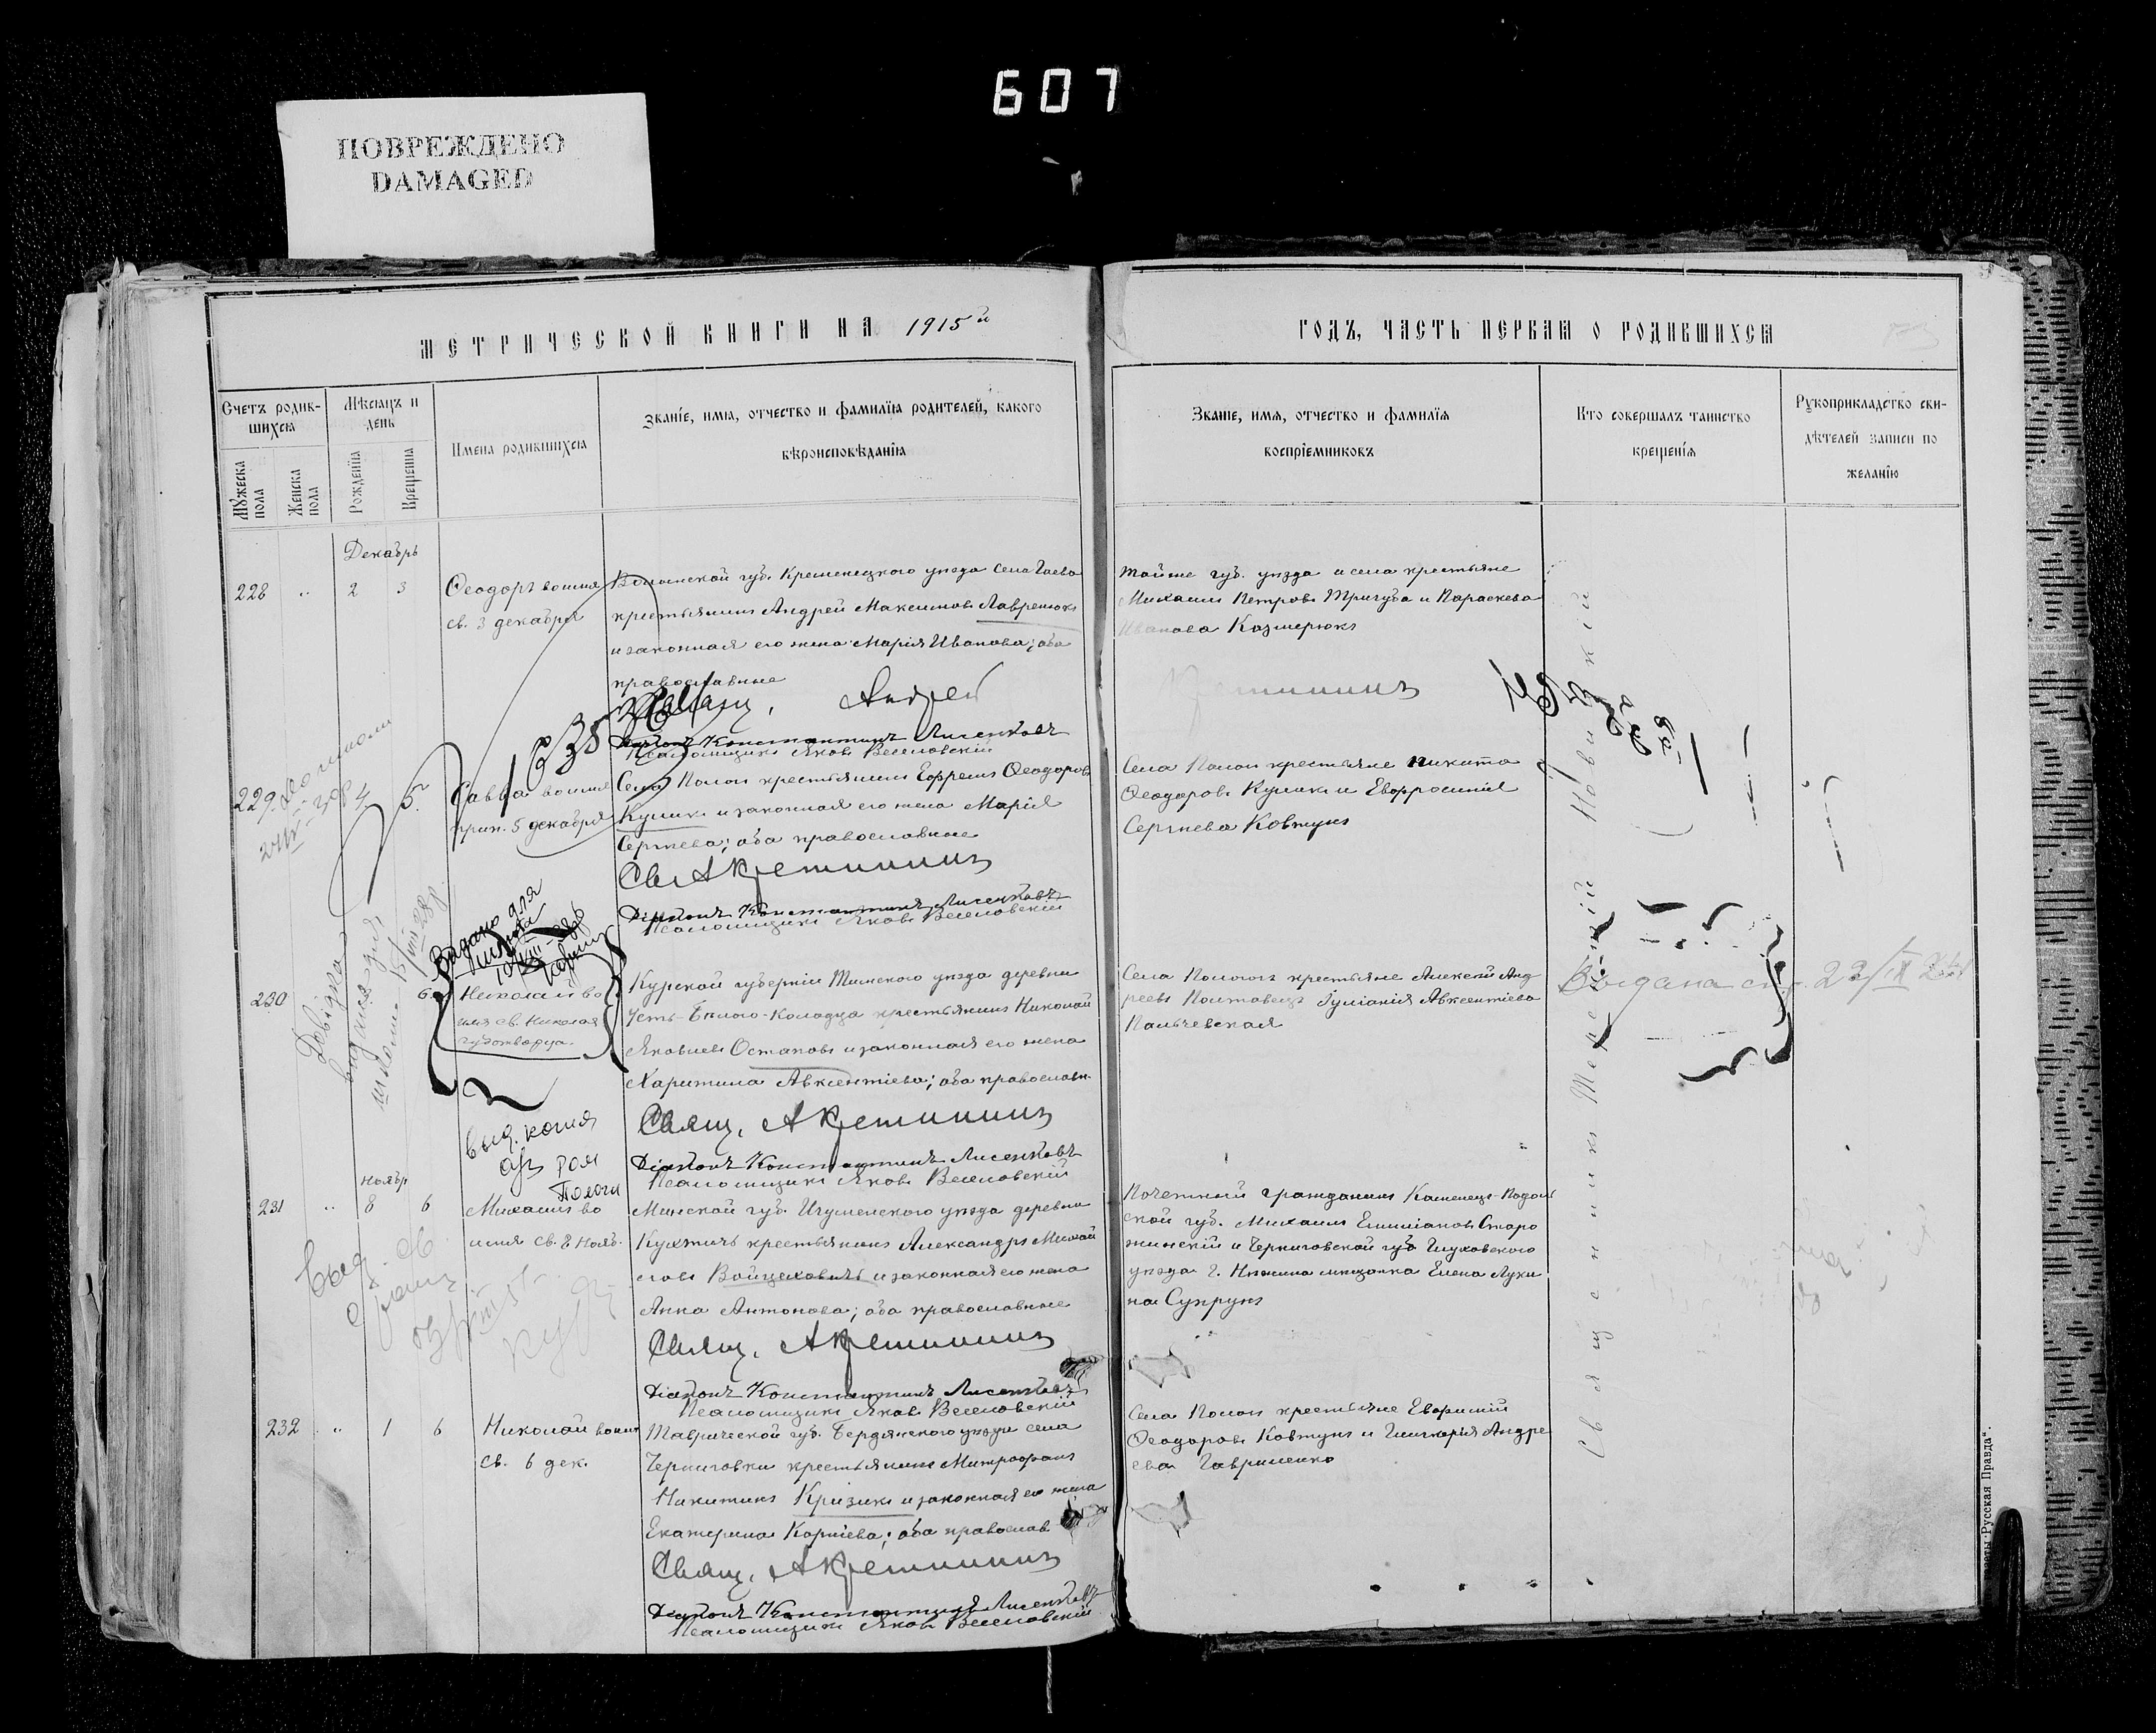 607
ПОВРЕЖДЕНО
DAMAGED
МЕТРИЧЕСКОЙ КНИГИ НА 1915й
ГОДЪ, ЧАСТЬ ПЕРВАЯ О РОДИВШИХСЯ
Счетъ родив-
шихся
Мѣсяцъ и
день
Мужеска
пола
Женска
пола
Рожденія
Крещенія
Имена родившихся
Званіе, имя, отчество и фамилія родителей, какого
вѣроисповѣданія
Званіе, имя, отчество и фамилія
воспріемниковъ
Кто совершалъ таинство
крещенія
Рукоприкладство сви-
дѣтелей записи по
желанію
Декабрь
228 " 2 3
Ѳеодоръ во имя
св. 3 декабря
Волынской губ. Кременецкого уѣзда села Гаева
крестьянинъ Андрей Максимовъ Лавренюкъ
и законная его жена Марія Иванова; оба
православные
Свящ. Андрей
Діаконъ Константинъ Лисенковъ
Псаломщикъ Яковъ Веселовскій
Тойже губ. уѣзда и села крестьяне
Михаилъ Петровъ Тригуба и Параскева
Иванова Казмерюкъ
Кретининъ
229 4 5
Савва во имя
прп. 5 декабря
Села Пологъ крестьянинъ Ефремъ Ѳеодоровъ
Куликъ и законная его жена Марія
Сергѣева; оба православные
Свящ. А Кретининъ
Діаконъ Константинъ Лисенковъ
Псаломщикъ Яковъ Веселовскій
Села Пологъ крестьяне Никита
Ѳеодоровъ Куликъ и Евфросинія
Сергѣева Ковтунъ
Видано для
230 6
Николай во
имя св. Николая
чудотворца.
Курской губерніи Тимского уѣзда деревни
Усть-Бѣлого-Колодца крестьянинъ Николай
Яковлевъ Остаповъ и законная его жена
Харитина Авксентіева; оба православн.
Свящ. А Кретининъ
Діаконъ Константинъ Лисенковъ
Псаломщикъ Яковъ Веселовскій
Села Пологъ крестьяне Алексѣй Анд-
реевъ Полтавецъ Іуліанія Авксентіева
Пальчевская
Выдана
выд. копія
Пологи
Ноябр
231 " 8 6
Михаилъ во
имя св. 8 Нояб.
Минской губ. Игуменского уѣзда деревни
Кухтичъ крестьянинъ Александръ Михай
ловъ Войцеховичъ и законная его жена
Анна Антонова; оба православные
Свящ. А Кретининъ
Діаконъ Константинъ Лисенковъ
Псаломщикъ Яковъ Веселовскій
Почетный гражданинъ Каменецъ-Подоль
ской губ. Михаилъ Емиліановъ Старо
жинскій и Черниговской губ. Глуховского
уѣзда г. Нѣжина мѣщанка Елена Луки
на Супрунъ
232 " 1 6
Николай во имя
св. 6 дек.
Таврической губ. Бердянского уѣзда села
Черниговки крестьянинъ Митрофанъ
Никитинъ Кризикъ и законная его жена
Екатерина Корнѣева; оба православ.
Свящ. А Кретининъ
Діаконъ Константинъ Лисенковъ
Псаломщикъ Яковъ Веселовскій
Села Пологъ крестьяне
Ѳеодоровъ Ковтунъ и Гликерія Андре
ева Гавриленко
Священникъ
"Русская Правда".